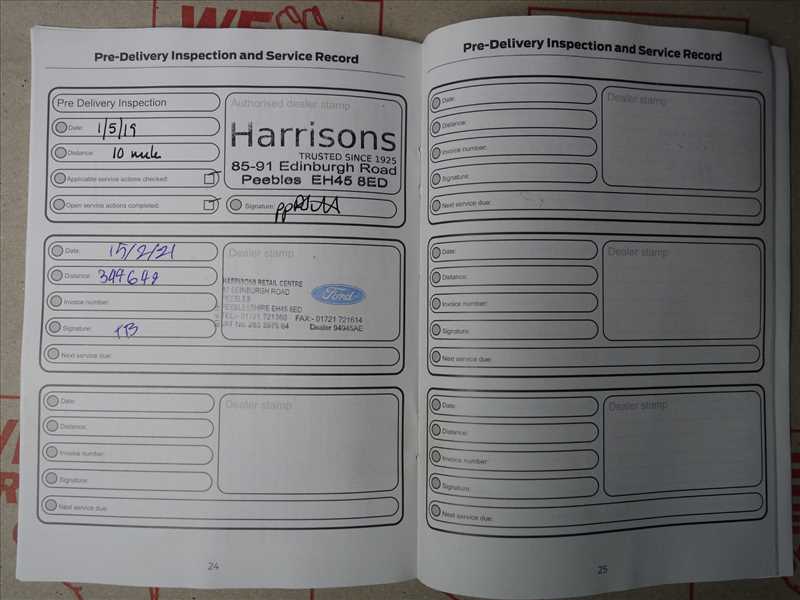 Pre-Delivery Inspection and Service Record
Pre Delivery Inspection
Authorised dealer stamp
Date: 1/5/19
Distance: 10 mile
Applicable service actions checked:
Open service actions completed:
Harrisons
TRUSTED SINCE 1925
85-91 Edinburgh Road
Peebles EH45 8ED
Signature:
Date: 15/2/21
Distance:
Invoice number:
Signature:
Next service due:
Dealer stamp
HARRISONS RETAIL CENTRE
EDINBURGH ROAD
PEEBLES
EH45 8ED
Ford
FAX:- 01721 721614
Dealer 94945AE
Date:
Distance:
Invoice number:
Signature:
Next service due:
Dealer stamp
24
Pre-Delivery Inspection and Service Record
Date:
Distance:
Invoice number:
Signature:
Next service due:
Dealer stamp
Date:
Distance:
Invoice number:
Signature:
Next service due:
Dealer stamp
Date:
Distance:
Invoice number:
Signature:
Next service due:
Dealer stamp
25